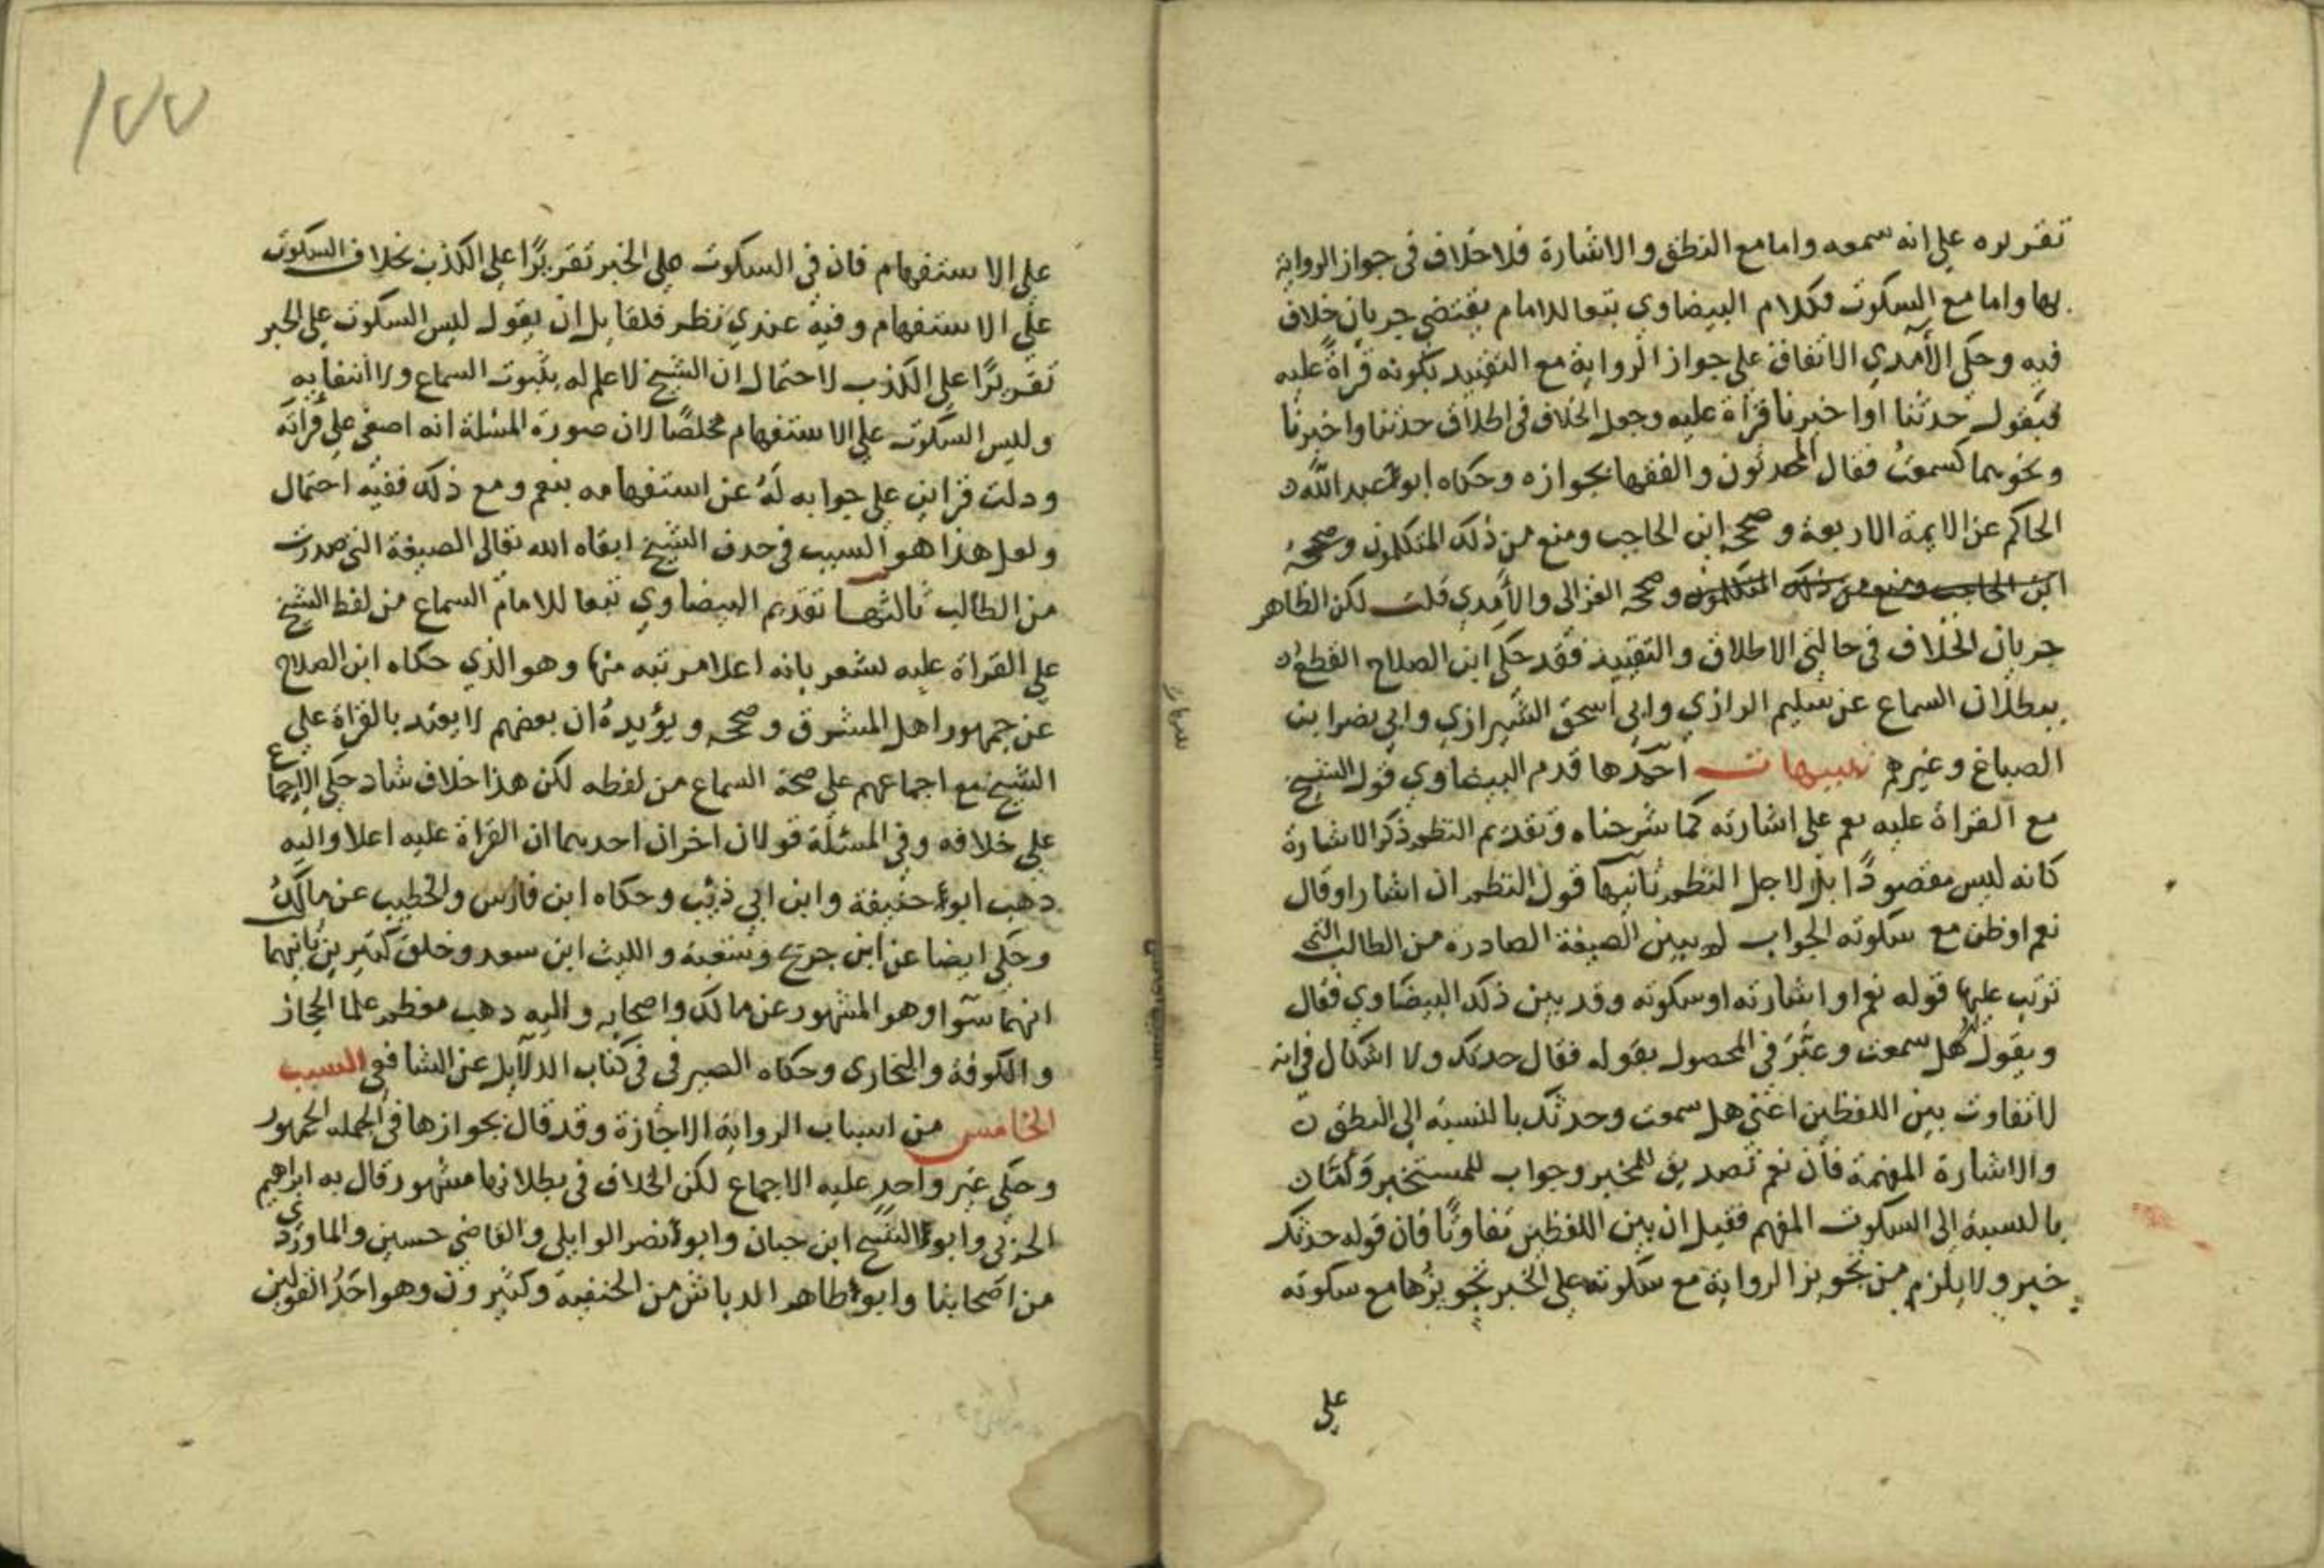 تقريره على انه سمعه واما مع النطق والاشارة فلا خلاف في جواز الرواية
بها واما مع السكوت فكلام البيضاوي تبعا للامام يقتضي جريان خلاف
فيه وحكى الآمدي الاتفاق على جواز الرواية مع التقييد بكونه قراة عليه
فيقول حدثنا او اخبرنا قراة عليه وجعل الخلاف في اطلاق حدثنا واخبرنا
ونحوهما كسمعت فقال المحدثون والفقها بجوازه وحكاه ابو عبد الله
الحاكم عن الايمة الاربعة وصححه ابن الحاجب ومنع من ذلك المتكلمون وصححه
ابن الحاجب ومنع من ذلك المتكلمون وصححه الغزالي والآمدي قلت لكن الظاهر
جريان الخلاف في حالتي الاطلاق والتقييد فقد حكى ابن الصلاح القطع
ببطلان السماع عن سليم الرازي وابي اسحق الشيرازي وابي نصر ابن
الصباغ وغيرهم تنبيهات احدها قدم البيضاوي قول الشيخ
مع القراة عليه نعم على اشارته كما شرحناه وتقديم النظم ذكر الاشارة
كانه ليس مقصودا بل لاجل النظم ثانيها قول النظم ان اشار او قال
نعم او ظن مع سكوته الجواب لم يبين الصيغة الصادرة من الطالب التي
ترتب عليها قوله نعم او اشارته او سكوته وقد بين ذلك البيضاوي فقال
ويقول له هل سمعت وعبر في المحصول بقوله فقال حدثك ولا اشكال في انه
لا تفاوت بين اللفظين اعني هل سمعت وحدثك بالنسبة الى النطق
والاشارة المفهمة فان نعم تصديق للمخبر وجواب للمستخبر
بالنسبة الى السكوت المفهم فقيل ان بين اللفظين تفاوتا فان قوله حدثك
خبر ولا يلزم من تجويز الرواية مع سكوته على الخبر تجويزها مع سكوته
على
١٧٧
على الاستفهام فان في السكوت على الخبر تقريرا على الكذب بخلاف السكوت
على الاستفهام وفيه عندي نظر فلقايل ان يقول ليس السكوت على الخبر
تقريرا على الكذب لاحتمال ان الشيخ لا علم له بثبوت السماع ولا انتفايه
وليس السكوت على الاستفهام مخلصا لان صورة المسئلة انه اصغى على قراته
ودلت قراين على جوابه له عن استفهامه بنعم ومع ذلك ففيه احتمال
ولعل هذا هو السبب في حذف الشيخ ابقاه الله تعالى الصيغة التي صدرت
من الطالب ثالثها تقديم البيضاوي تبعا للامام السماع من لفظ الشيخ
على القراة عليه يشعر بانه اعلا مرتبه منها وهو الذي حكاه ابن الصلاح
عن جمهور اهل المشرق وصححه ويؤيده ان بعضهم لا يعتد بالقراة على
الشيخ مع اجماعهم على صحة السماع من لفظه لكن هذا خلاف شاذ حكي الاجماع
على خلافه وفي المسئلة قولان اخران احدهما ان القراة عليه اعلا واليه
ذهب ابو حنيفة وابن ابي ذئب وحكاه ابن فارس والخطيب عن مالك
وحكي ايضا عن ابن جريج وشعبة والليث ابن سعد وخلق كثيرين ثانيهما
انهما سوا وهو المشهور عن مالك واصحابه واليه ذهب معظم علما الحجاز
والكوفة والبخاري وحكاه الصيرفي في كتاب الدلايل عن الشافعي السبب
الخامس من اسباب الرواية الاجازة وقد قال بجوازها في الجملة الجمهور
وحكى غير واحد عليه الاجماع لكن الخلاف في بطلانها مشهور قال به ابراهيم
الحربي وابو الشيخ ابن حبان وابو نصر الوايلي والقاضي حسين والماوردي
من اصحابنا وابو طاهر الدباش من الحنفية وكثيرون وهو احد القولين